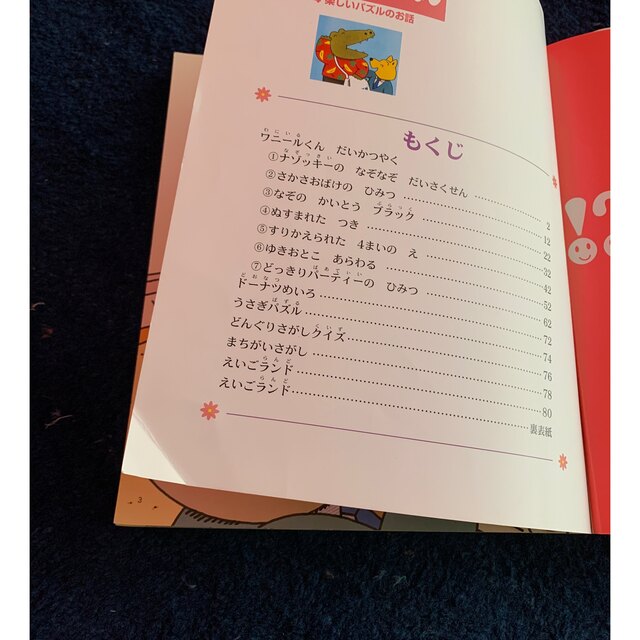 楽しいパズルのお話
もくじ
わにいる
ワニールくん だいかつやく
なぞっきい
①ナゾッキーの なぞなぞ だいさくせん……2
②さかさおばけの ひみつ……12
ぶらっく
③なぞの かいとう ブラック……22
④ぬすまれた つき……32
⑤すりかえられた 4まいの え……42
⑥ゆきおとこ あらわる……52
ぱあてぃい
⑦どっきりパーティーの ひみつ……62
どおなつ
ドーナツめいろ……72
ぱずる
うさぎパズル……74
くいず
どんぐりさがしクイズ……76
まちがいさがし……78
らんど
えいごランド……80
らんど
えいごランド……裏表紙
3
!?